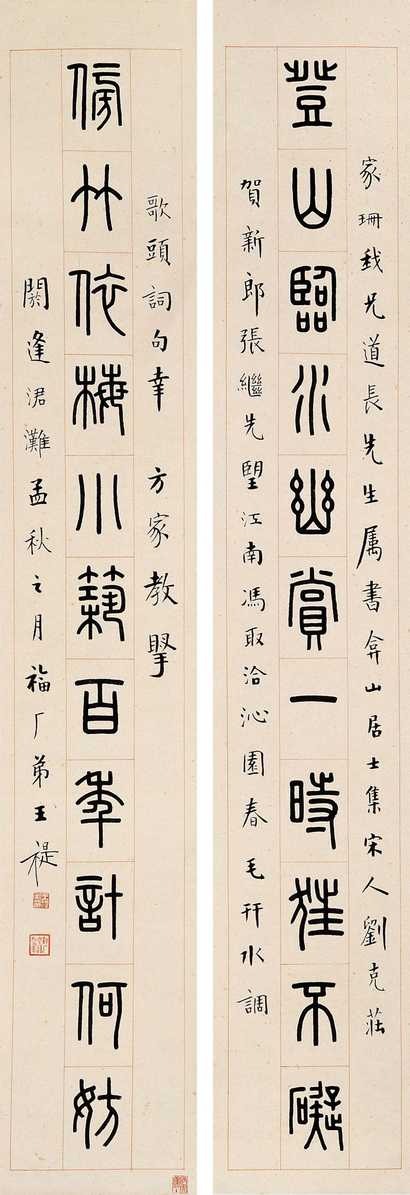 家珊我兄道長先生属書弇山居士集宋人劉克莊
登山臨水幽賞一時狂不礙
賀新郎張繼先望江南馮取洽沁園春毛幵水調
歌頭詞句幸 方家教掔
傍竹依梅小築百年計何妨
閼逢涒灘孟秋之月福厂弟王禔